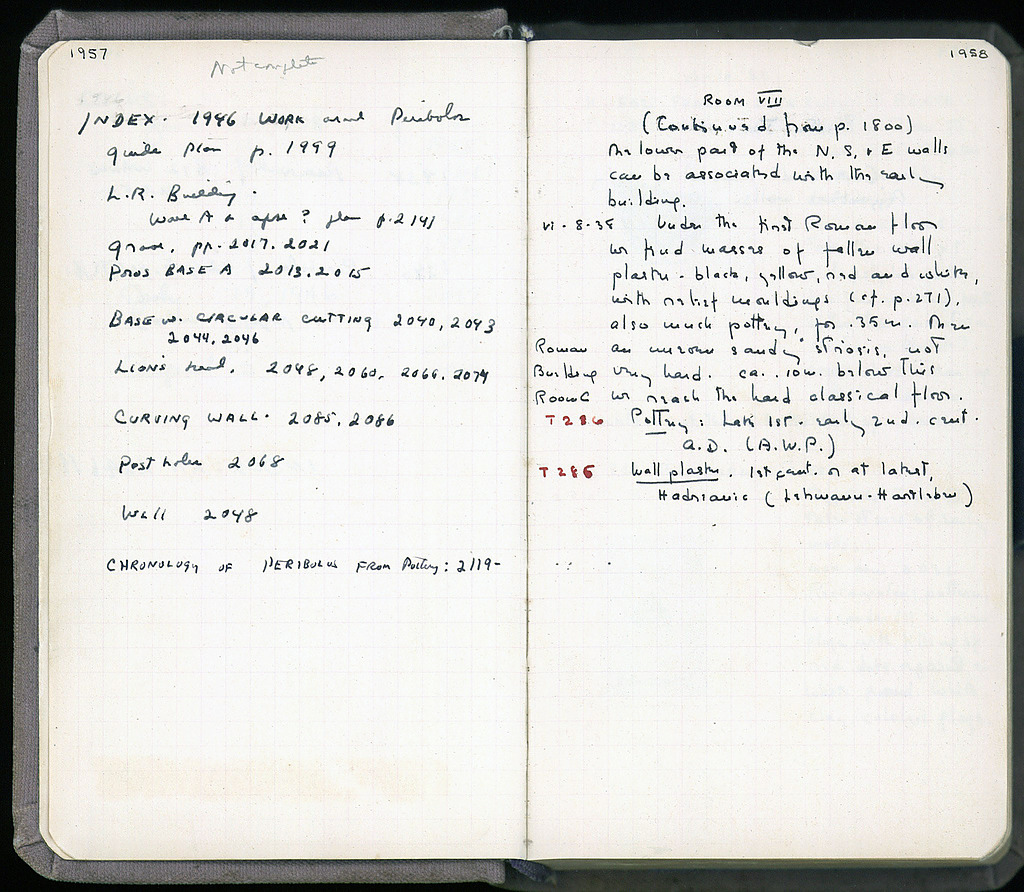 1957
Not complete
INDEX. 1946 WORK around Peribolos
Guide Plan p. 1999
L.R. Building.
Wall A & apse? plan p. 2141
Grave. pp. 2017. 2021
Poros BASE A 2013. 2015
BASE w. CIRCULAR CUTTING 2040, 2043
2044, 2046
Lion's head. 2048, 2060, 2066, 2074
CURVING WALL. 2085, 2086
Post holes 2068
Wall 2048
CHRONOLOGY OF PERIBOLUS FROM Pottery: 2119-
1958
ROOM VIII
(Continued from p. 1800)
The lower part of the N. S. & E walls
can be associated with the early
building.
VI-8-35 Under the first Roman floor
we find masses of fallen wall
plaster - black, yellow, red and white,
with relief mouldings (cf. p. 271),
also much pottery, for .35 m. Then
Roman an uneven sandy strosis, not
Building very hard. ca. .10 m. below this
Room C we reach the hard classical floor.
T 286 Pottery: Late 1st - early 2nd. cent.
A.D. (A.W.P.)
T 285 Wall plaster. 1st cent. or at latest,
Hadrianic (Lehmann-Hartleben)